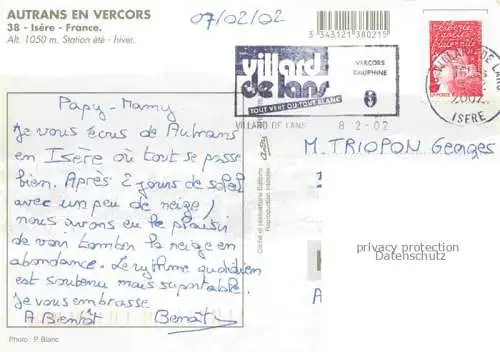 AUTRANS EN VERCORS
38 - Isère - France.
Alt. 1050 m. Station été - hiver.
07/02/02
3 343121 380215
villard de lans
TOUT VERT OU TOUT BLANC
VERCORS
DAUPHINE
VILLARD DE LANS 8 2-02
ISERE
Papy - Mamy
Je vous écris de Autrans
en Isère où tout se passe
bien. Après 2 jours de soleil
avec un peu de neige,
nous avons eu le plaisir
de voir tomber la neige en
abondance. Le rythme quotidien
est soutenu mais supportable.
Je vous embrasse
A Bientôt Benoît
M. TRIOPON Georges
privacy protection
Datenschutz
Photo : P. Blanc